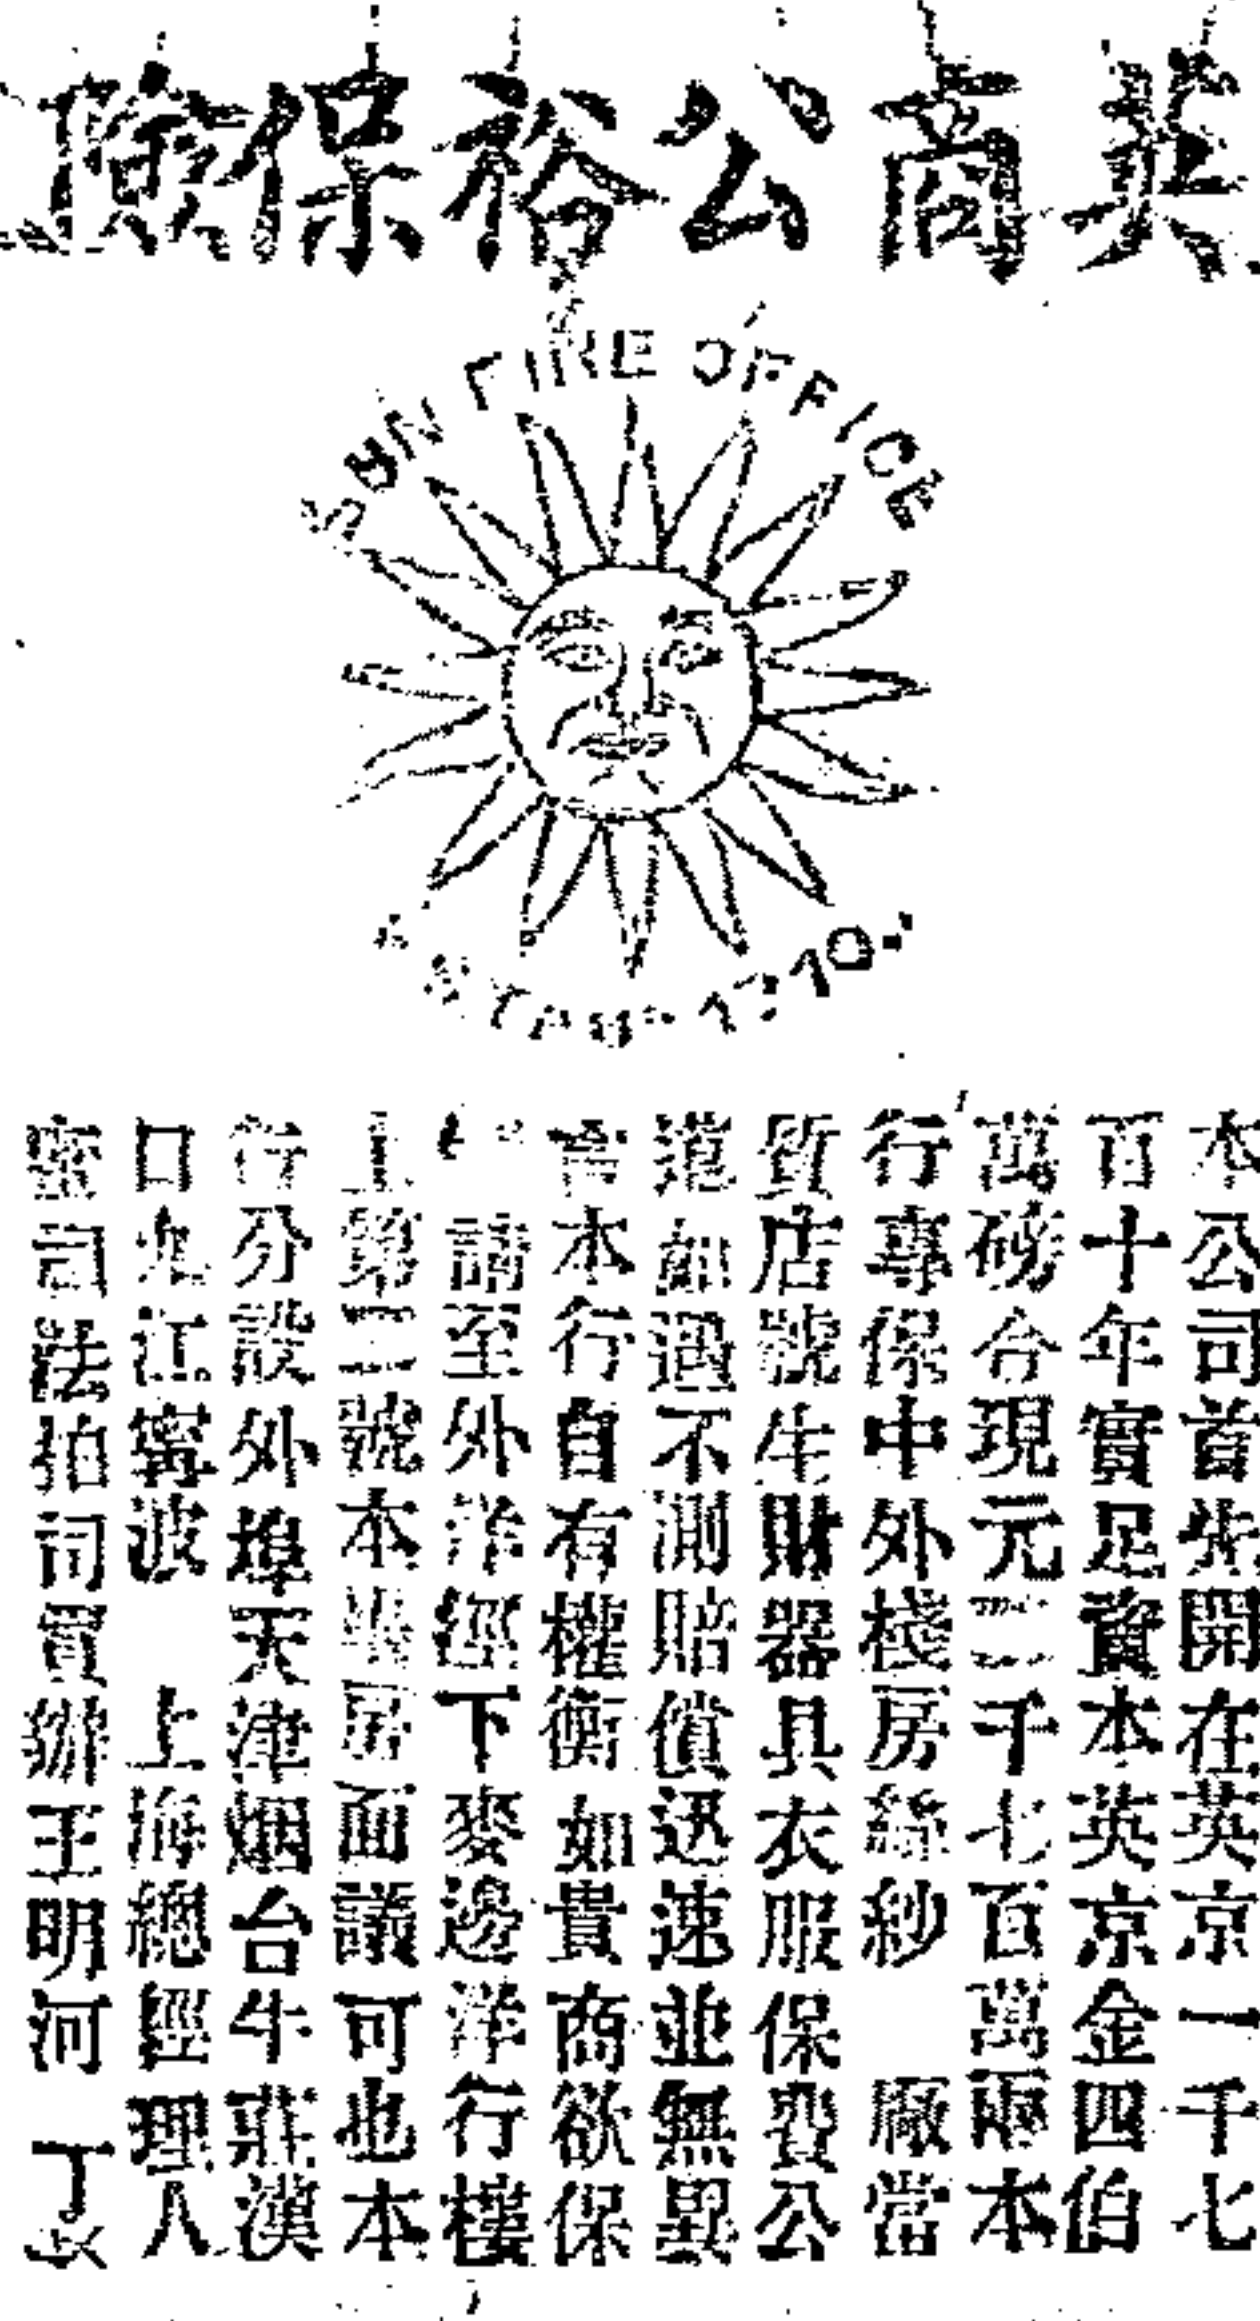 英商公裕保險
SUN FIRE OFFICE
ESTAB. 1710.
本公司首先開在英京一千七
百十年實足資本英京金四伯
萬磅合現元三千七百萬兩本
行專保中外棧房絲紗 廠當
質店號生財器具衣服保費公
道如遇不測賠償迅速並無異
言本行自有權衡如貴商欲保
請至外洋涇下麥邊洋行樓
上第二號本 房面議可也本
行分設外埠天津烟台牛莊漢
口九江寧波 上海總經理人
司 拍司買辦王明河 丁